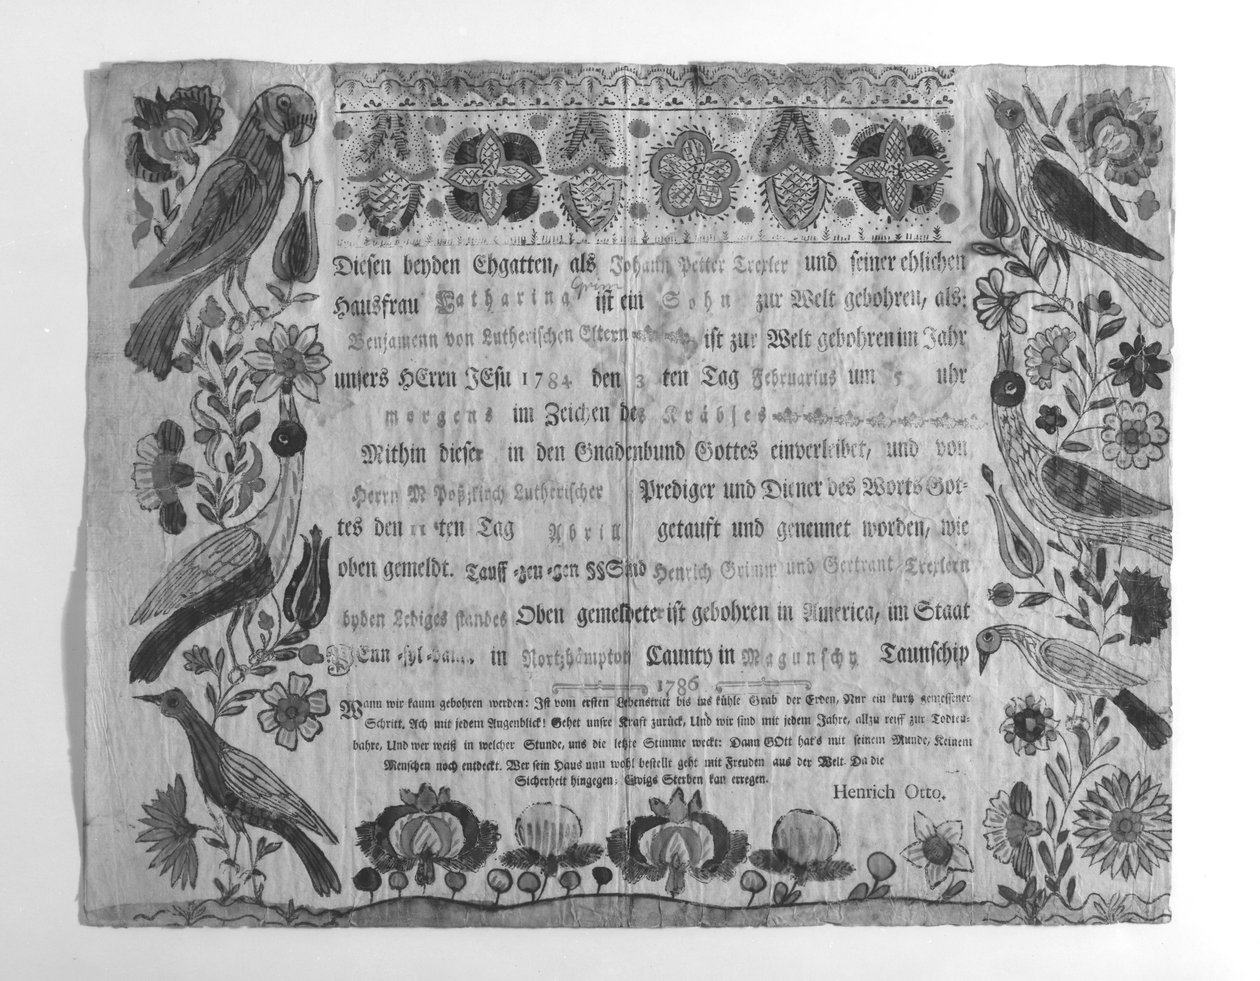 Diesen beyden Ehgatten, als Johann Petter Trexler und seiner ehlichen
Grim
Hausfrau Catharina ist ein Sohn zur Welt gebohren, als:
Benjamenn von Lutherischen Eltern ist zur Welt gebohren im Jahr
unsers HErrn JEsu 1784 den 3 ten Tag Februarius um 5 uhr
morgens im Zeichen des Kräbses
Mithin dieser in den Gnadenbund Gottes einverleibet, und von
Herrn M Lutherischer Prediger und Diener des Worts Got-
tes den 11 ten Tag Abrill getauft und genennet worden, wie
oben gemeldt. Tauff-zeu-gen Sind Henrich Grimm und Gertraut Trexlern
byden Lediges standes Oben gemeldete ist gebohren in America, im Staat
Penn-syl-van.. in Northämpton Caunty in Magunschy Taunschip
1786
Wann wir kaum gebohren werden: Ist vom ersten Lebenstritt bis ins kühle Grab der Erden, Nur ein kurtz gemessener
Schritt. Ach mit jedem Augenblick! Gehet unsre Kraft zurück, Und wir sind mit jedem Jahre, allzu reiff zur Todten-
bahre, Und wer weiß in welcher Stunde, uns die letzte Stimme weckt: Dann GOtt hat's mit seinem Munde, Keinem
Menschen noch entdeckt. Wer sein Haus nun wohl bestellt geht mit Freuden aus der Welt. Da die
Sicherheit hingegen: Ewigs Sterben kan erregen.
Henrich Otto.